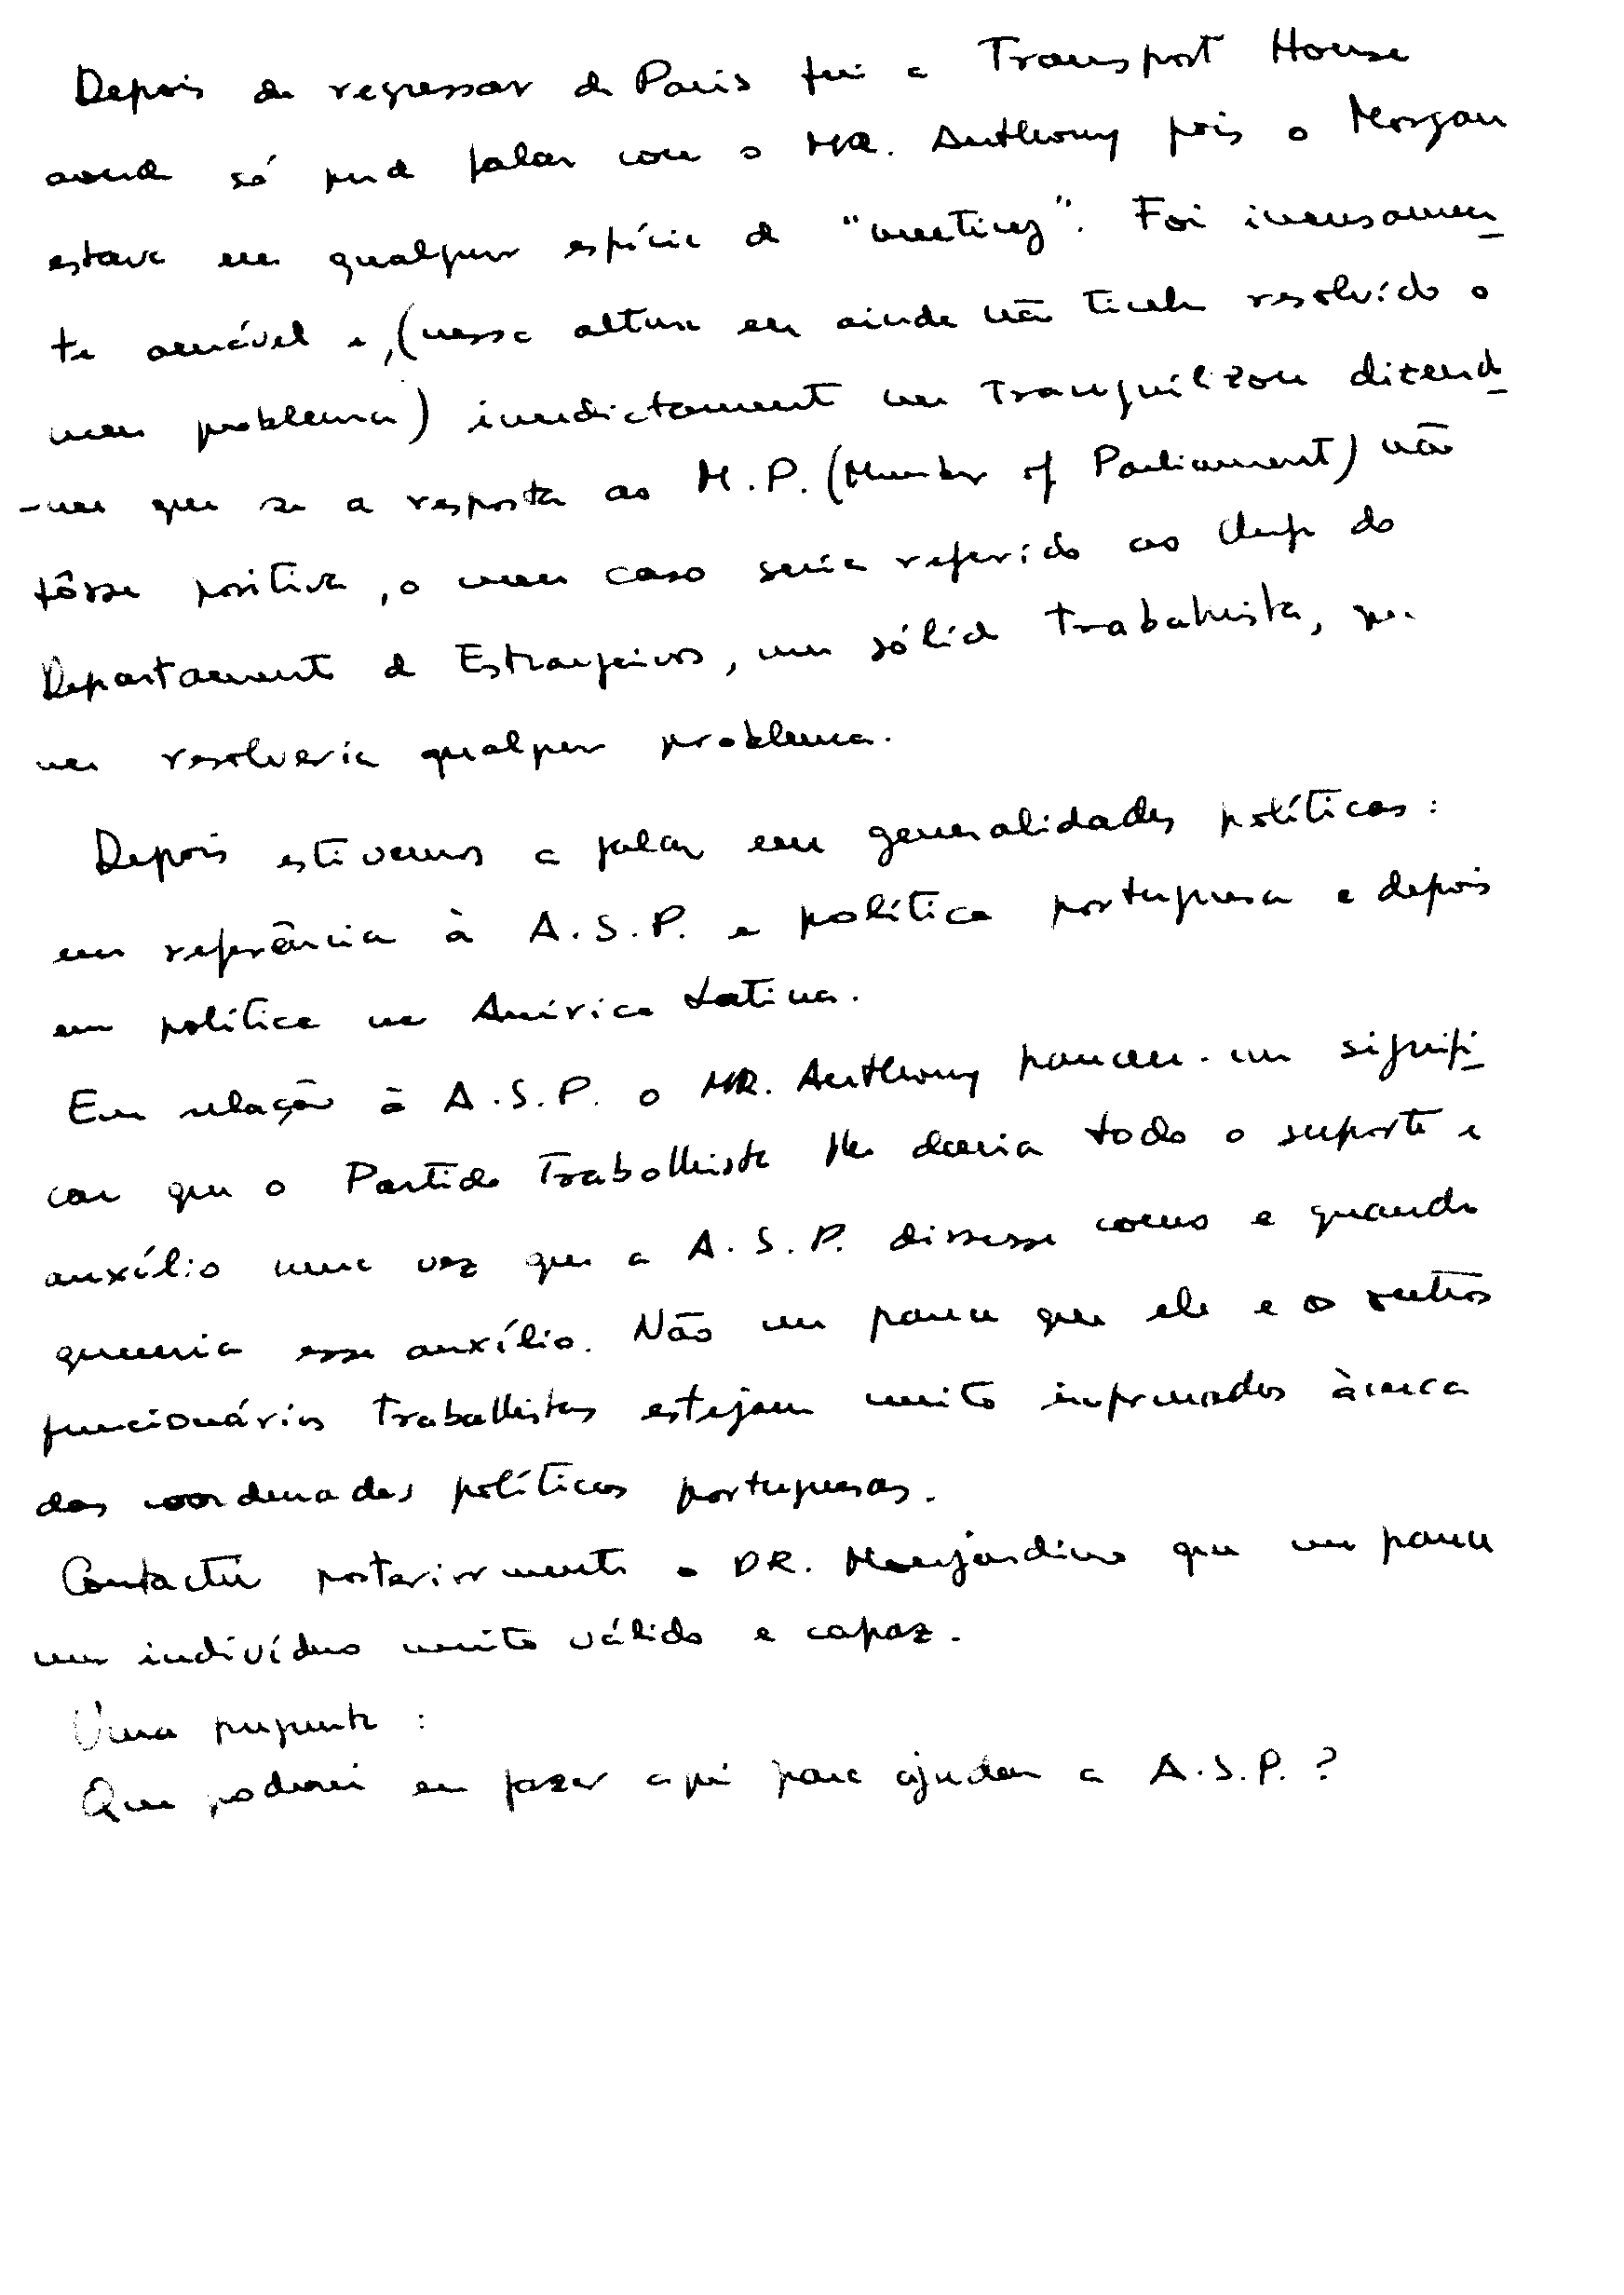 Depois de regressar de Paris fui a Transport House
aonde só pude falar com o MR. Anthony pois o Morgan
estava em qualquer espécie de "meeting". Foi imensamen
te amável e, (nessa altura eu ainda não tinha resolvido o
meu problema) imediatamente me tranquilizou dizendo
-me que se a resposta ao M.P. (Member of Parliament) não
fôsse positiva, o meu caso seria referido ao Chefe do
Departamento de Estrangeiros, um sólido Trabalhista, que
me resolveria qualquer problema.
Depois estivemos a falar em generalidades políticas:
em referência à A.S.P. e política portuguesa e depois
em política na América Latina.
Em relação à A.S.P. o MR. Anthony pareceu-me signifi
car que o Partido Trabalhista lhe daria todo o suporte e
auxílio uma vez que a A.S.P. dissesse como e quando
quereria esse auxílio. Não me parece que ele e os outros
funcionários trabalhistas estejam muito informados àcerca
das coordenadas políticas portuguesas.
Contactei posteriormente o DR. Monjardino que me parece
um indivíduo muito válido e capaz.
Uma pregunta:
Que poderei eu fazer aqui para ajudar a A.S.P.?